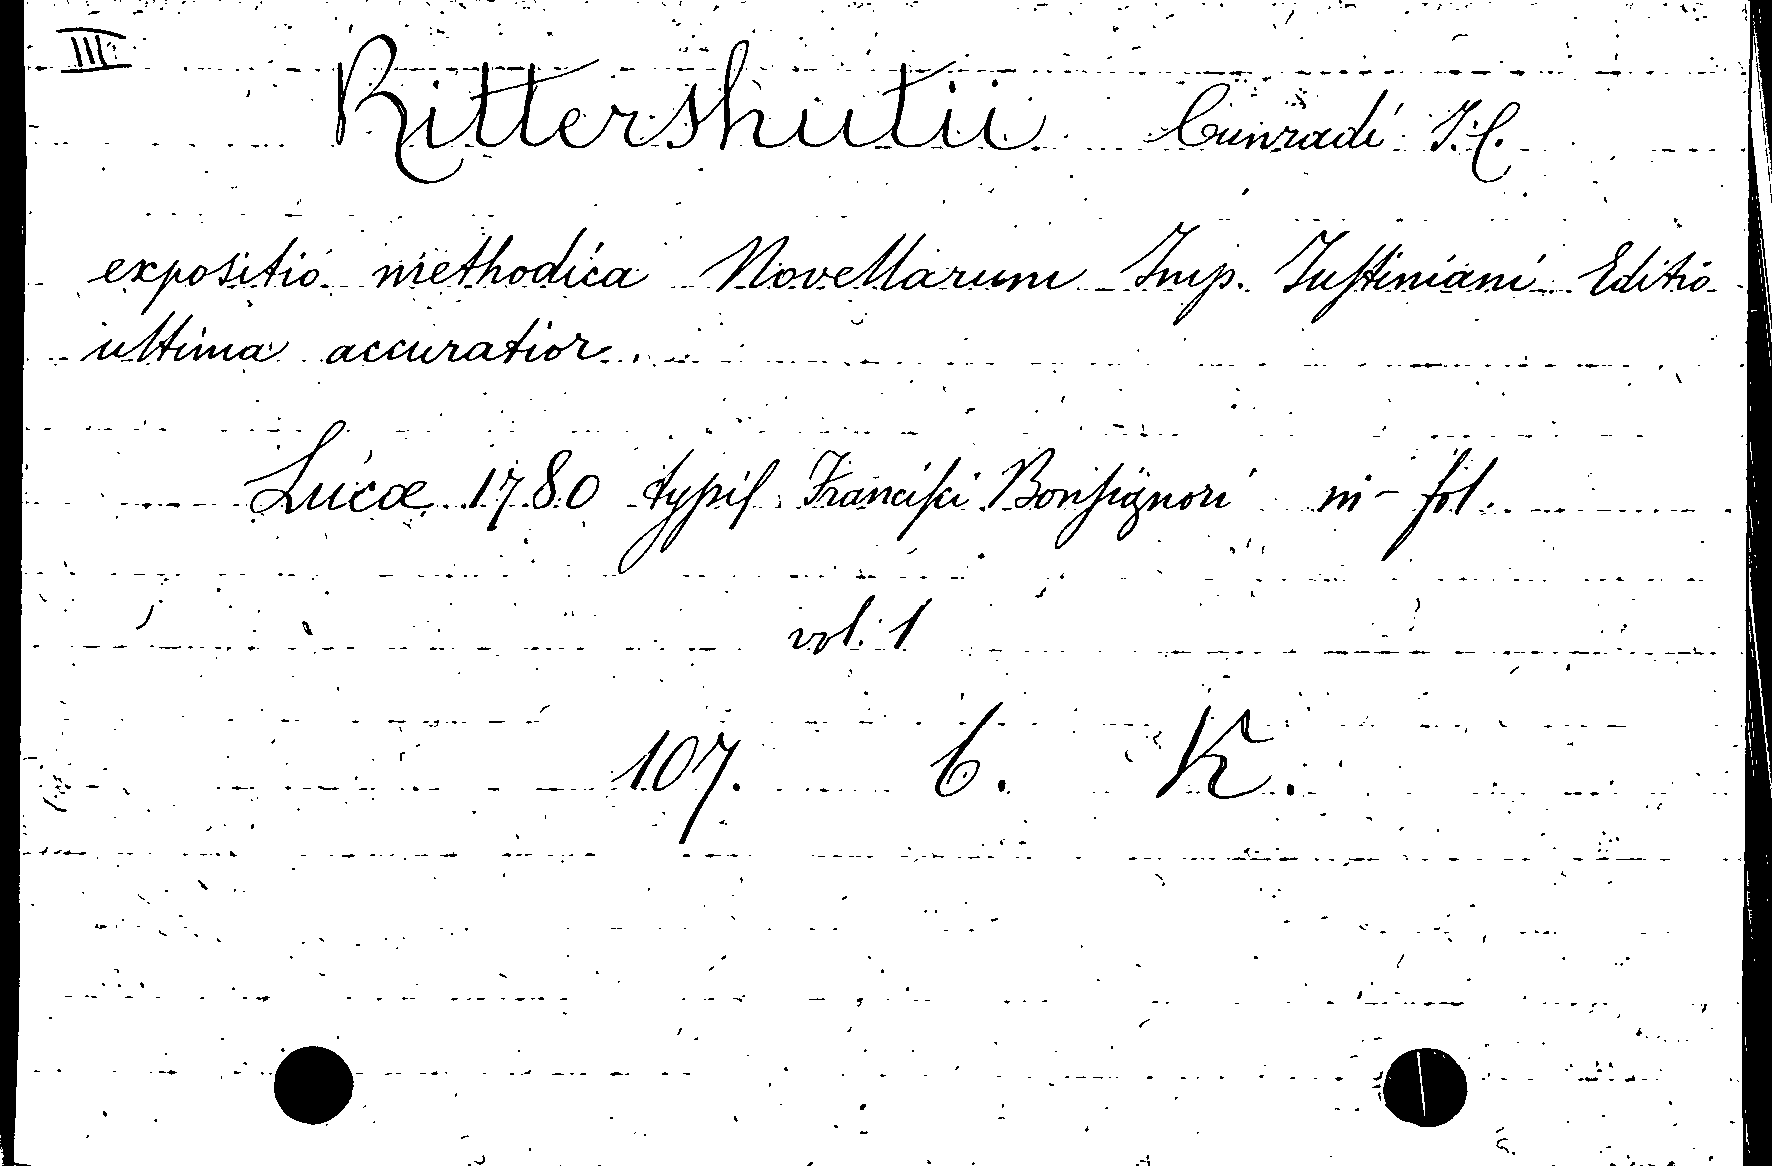 III
Rittershutii Cunradi J.C.
expositio methodica Novellarum Imp. Juſtiniani Editio
ultima accuratior.
Lucæ 1780 typiſ Franciſci Bonſignori in-fol.
vol. 1
107. 6. K.